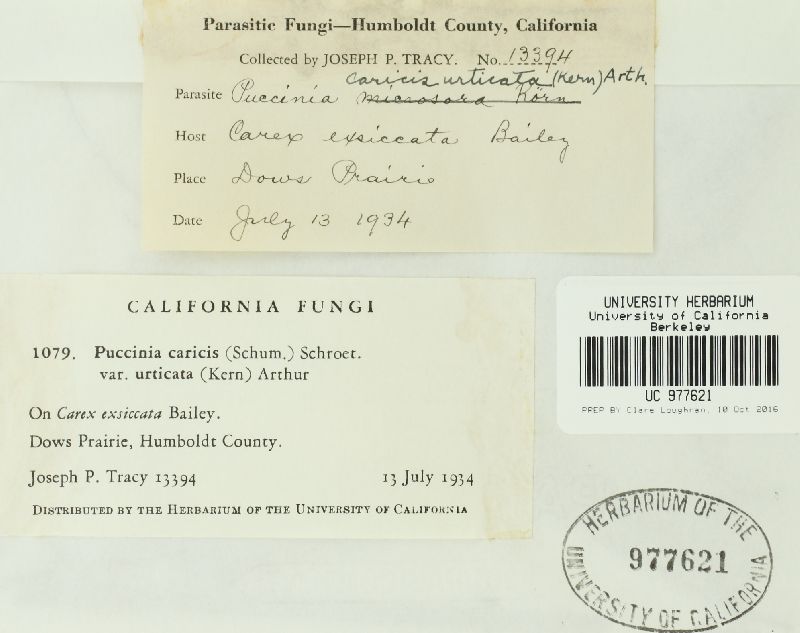 Parasitic Fungi—Humboldt County, California
Collected by JOSEPH P. TRACY. No. 13394
caricis urticata (Kern) Arth.
Parasite Puccinia microsora Körn
Host Carex exsiccata Bailey
Place Dows Prairie
Date July 13 1934
CALIFORNIA FUNGI
1079. Puccinia caricis (Schum.) Schroet.
var. urticata (Kern) Arthur
On Carex exsiccata Bailey.
Dows Prairie, Humboldt County.
Joseph P. Tracy 13394 13 July 1934
DISTRIBUTED BY THE HERBARIUM OF THE UNIVERSITY OF CALIFORNIA
UNIVERSITY HERBARIUM
University of California
Berkeley
UC 977621
PREP BY Clare Loughran, 10 Oct 2016
HERBARIUM OF THE
977621
UNIVERSITY OF CALIFORNIA